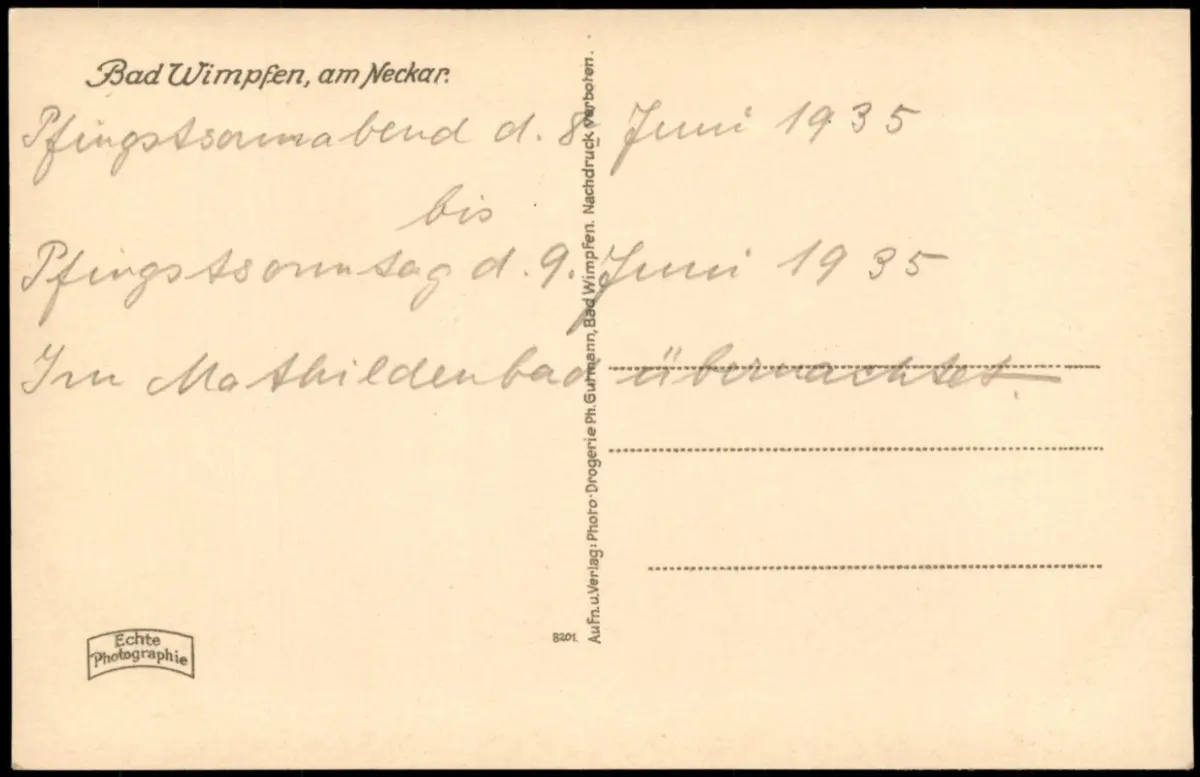 Bad Wimpfen, am Neckar.
Pfingstsonnabend d. 8. Juni 1935
bis
Pfingstsonntag d. 9. Juni 1935
Im Mathildenbad übernachtet
Aufn. u. Verlag: Photo-Drogerie Ph. Gutmann, Bad Wimpfen. Nachdruck verboten.
8201.
Echte
Photographie